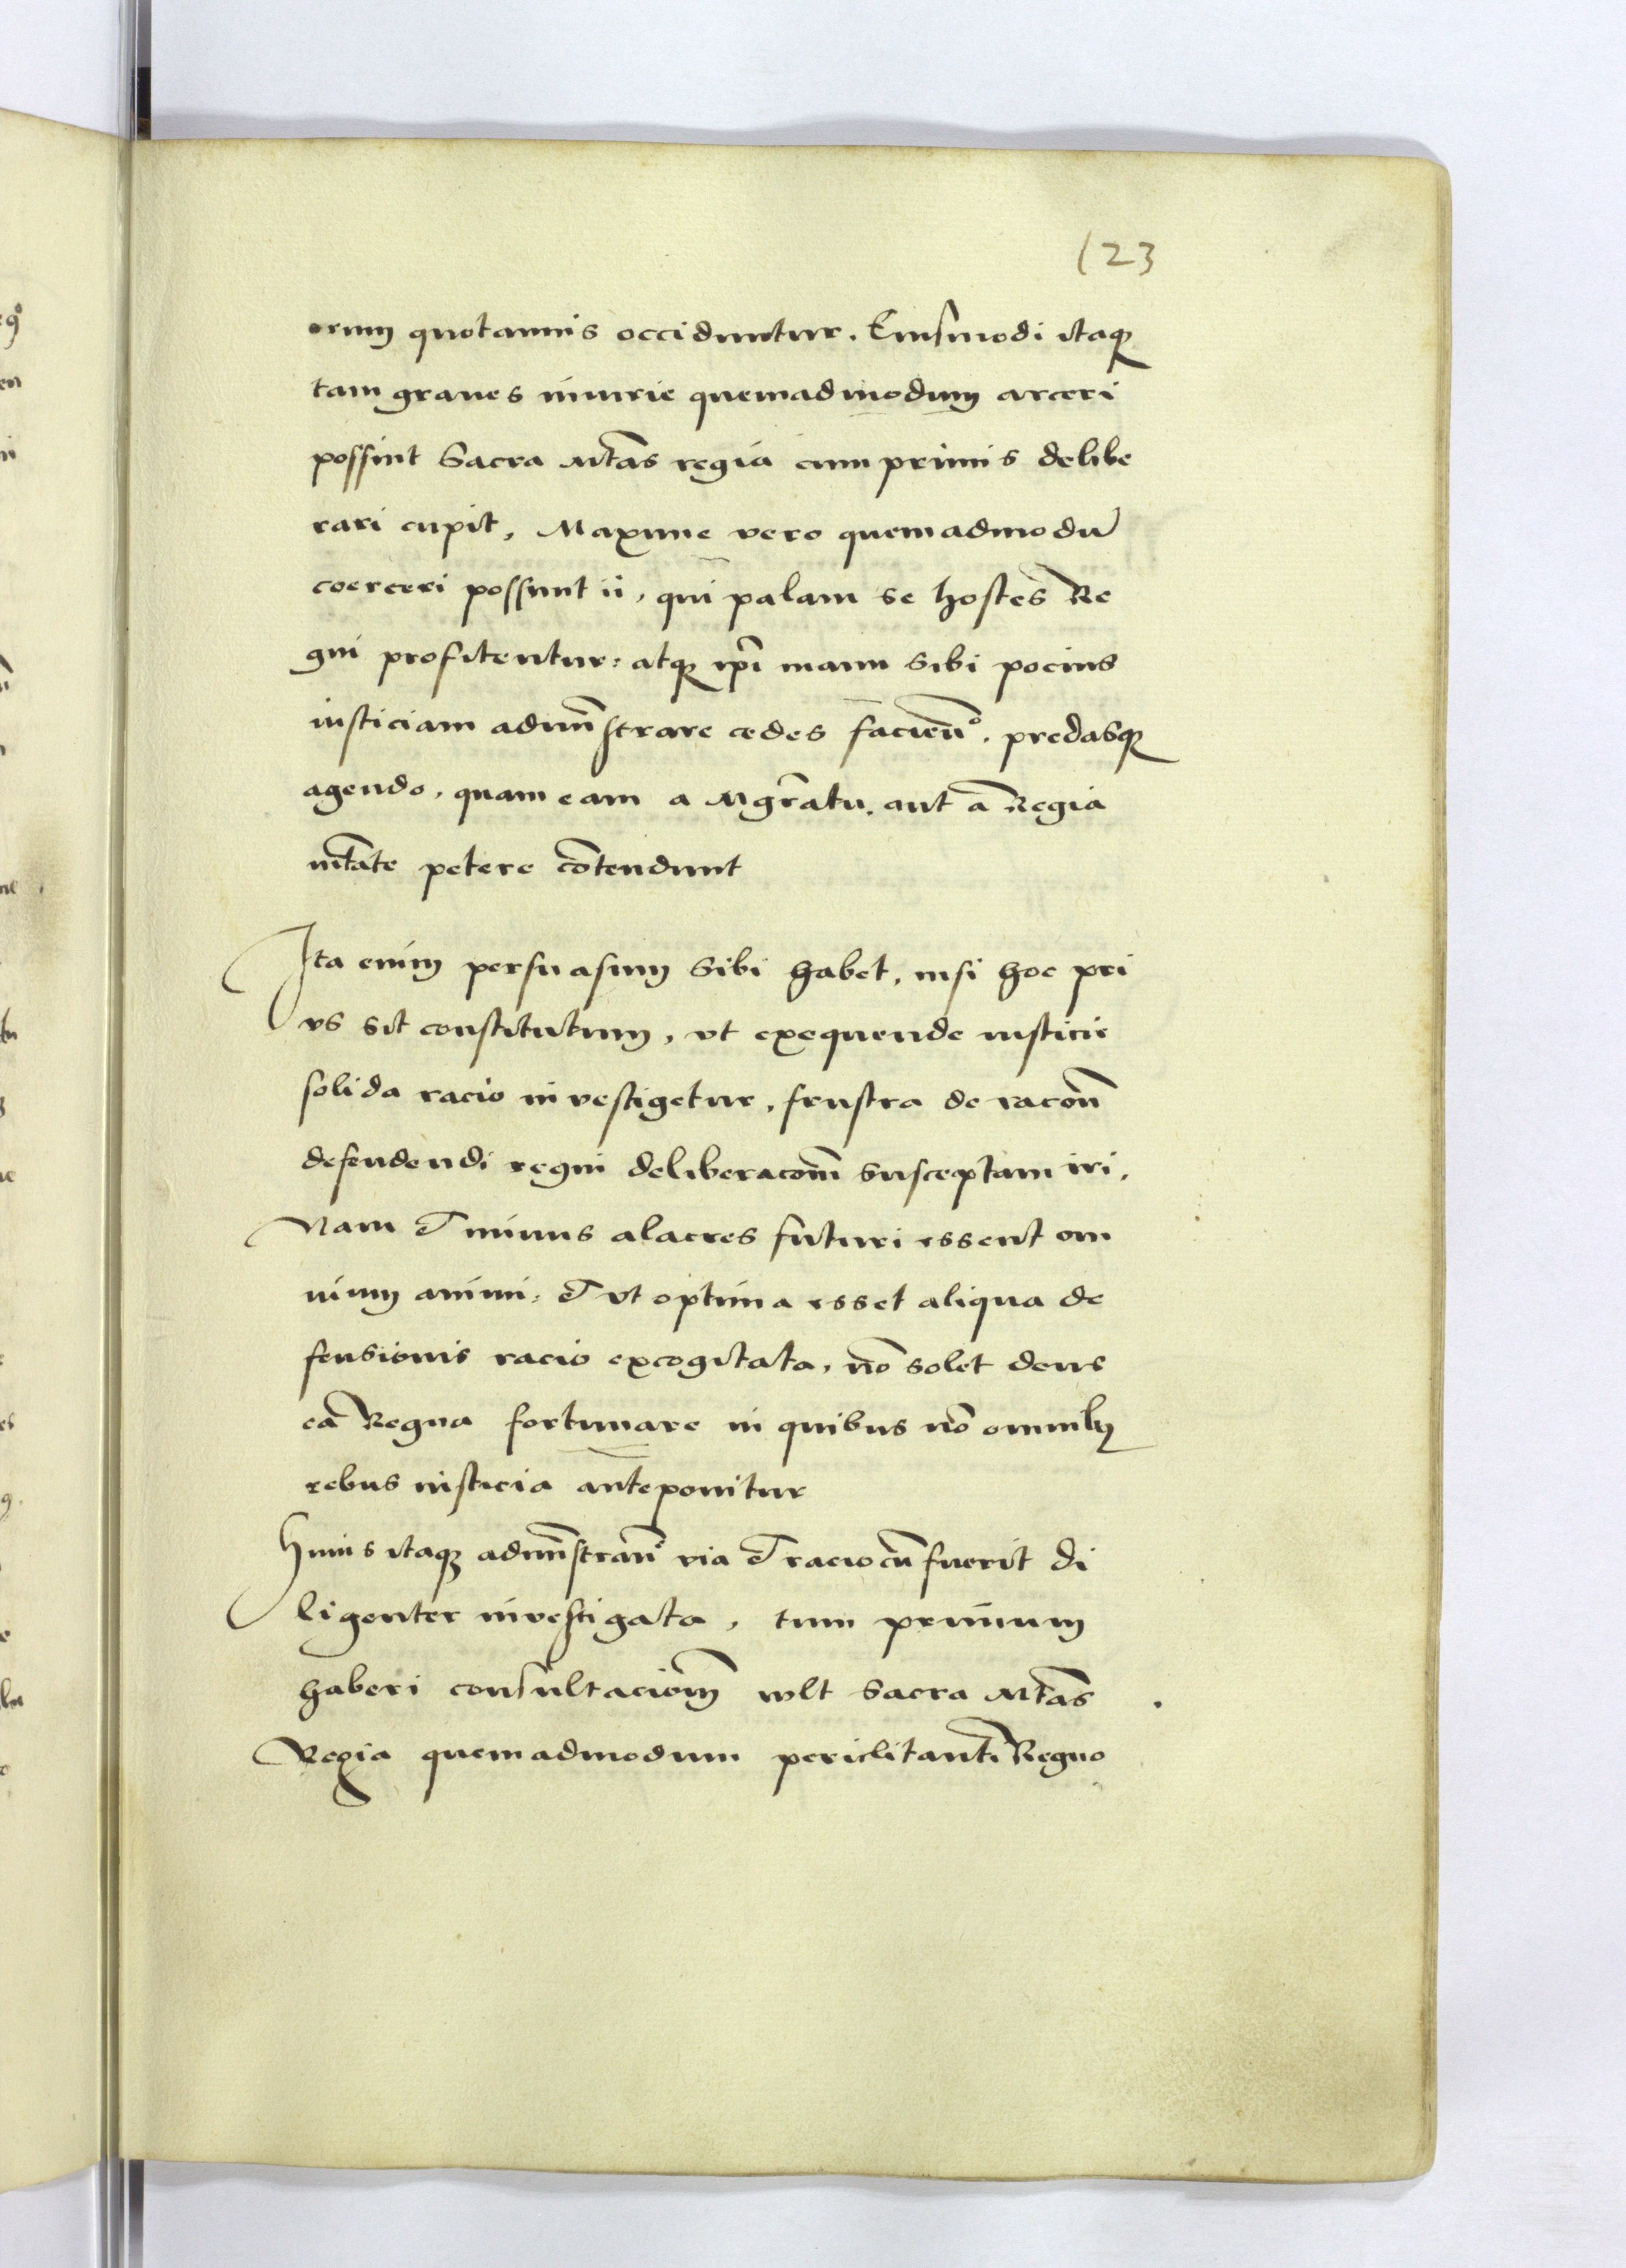 123
orum quotannis occiduntur. Eiusmodi itaq
tam graues iniurie quemadmodum arceri
possint Sacra Mtas regia cum primis delibe
rari cupit, Maxime vero quemadmodũ
coerceri possunt ii, qui palam se hostes Re
gni profitentur: atq ipi manu sibi pocius
iusticiam admstrare cedes facien°. predasq
agendo, quam eam a Mgratu, aut a Regia
mtate petere cõtendunt
Ita enim persuasum sibi habet, nisi hoc pri
us sit constitutum, vt exequende iusticie
solida racio investigetur, frustra de racon
defendendi regni deliberacom susceptam iri.
Nam et minus alacres futuri essent om
nium animi: et vt optima esset aliqua de
fensionis racio excogitata, nõ solet deus
ea Regna fortunare in quibus nõ omnibꝫ
rebus iusticia anteponitur
Huius itaq admstran via et racio cũ fuerit di
ligenter investigata, tum primum
haberi consultaciom vult Sacra Mtas
Regia quemadmodum periclitanti Regno